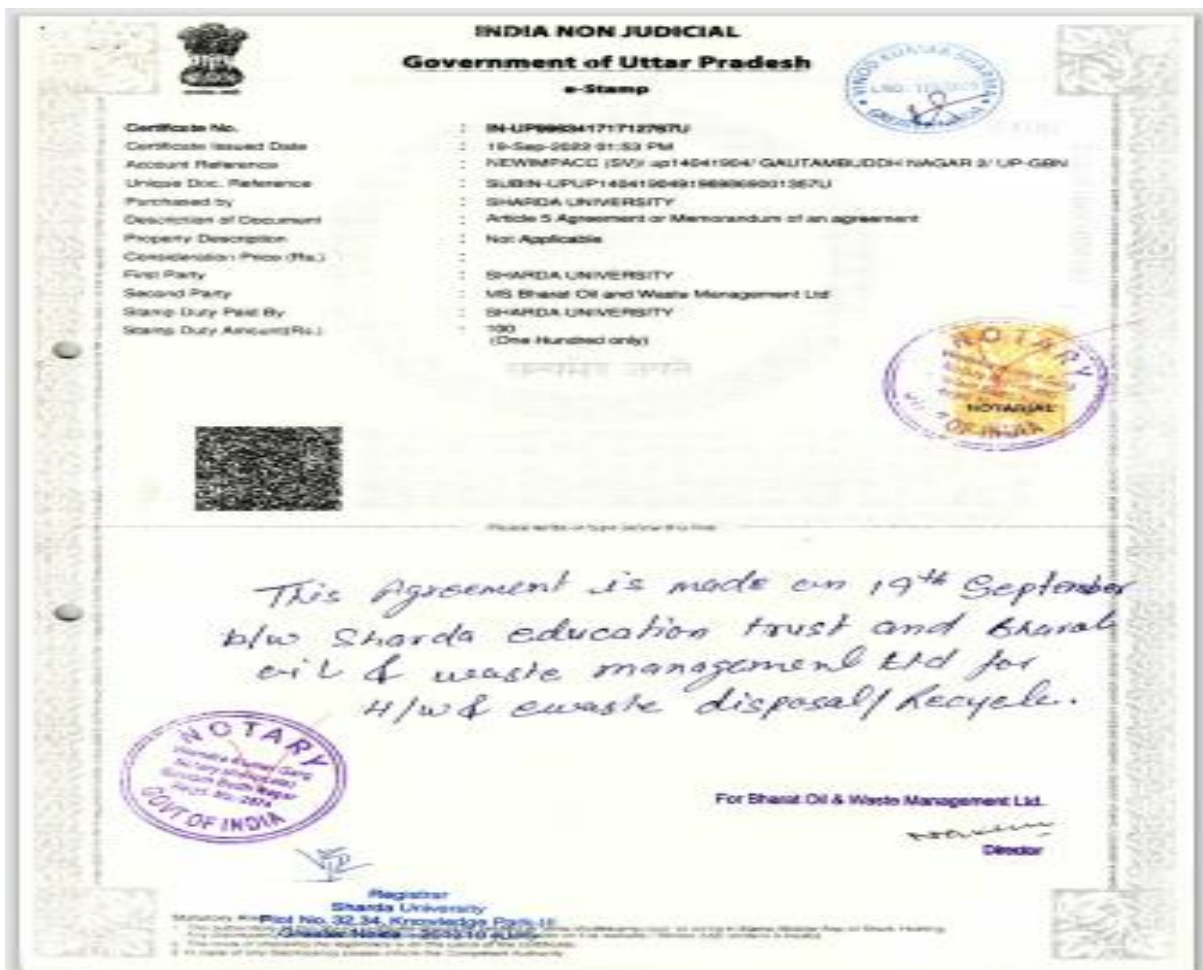 INDIA NON JUDICIAL
Government of Uttar Pradesh
e-Stamp
VINOD KUMAR SHARMA
Certificate No. :
Certificate Issued Date : 19-Sep-2022 01:53 PM
Account Reference : NEWIMPACC (SV)/ up14041904/ GAUTAMBUDDH NAGAR 2/ UP-GBN
Unique Doc. Reference :
Purchased by : SHARDA UNIVERSITY
Description of Document : Article 5 Agreement or Memorandum of an agreement
Property Description : Not Applicable
Consideration Price (Rs.) :
First Party : SHARDA UNIVERSITY
Second Party : MS Bharat Oil and Waste Management Ltd
Stamp Duty Paid By : SHARDA UNIVERSITY
Stamp Duty Amount(Rs.) : 100
(One Hundred only)
NOTARY
NOTARIAL
OF INDIA
This Agreement is made on 19th September
b/w Sharda education trust and Bharat
oil & waste management Ltd for
H/w & ewaste disposal/Recycle.
NOTARY
GOVT OF INDIA
For Bharat Oil & Waste Management Ltd.
Director
Registrar
Sharda University
Plot No. 32,34, Knowledge Park-III
Greater Noida